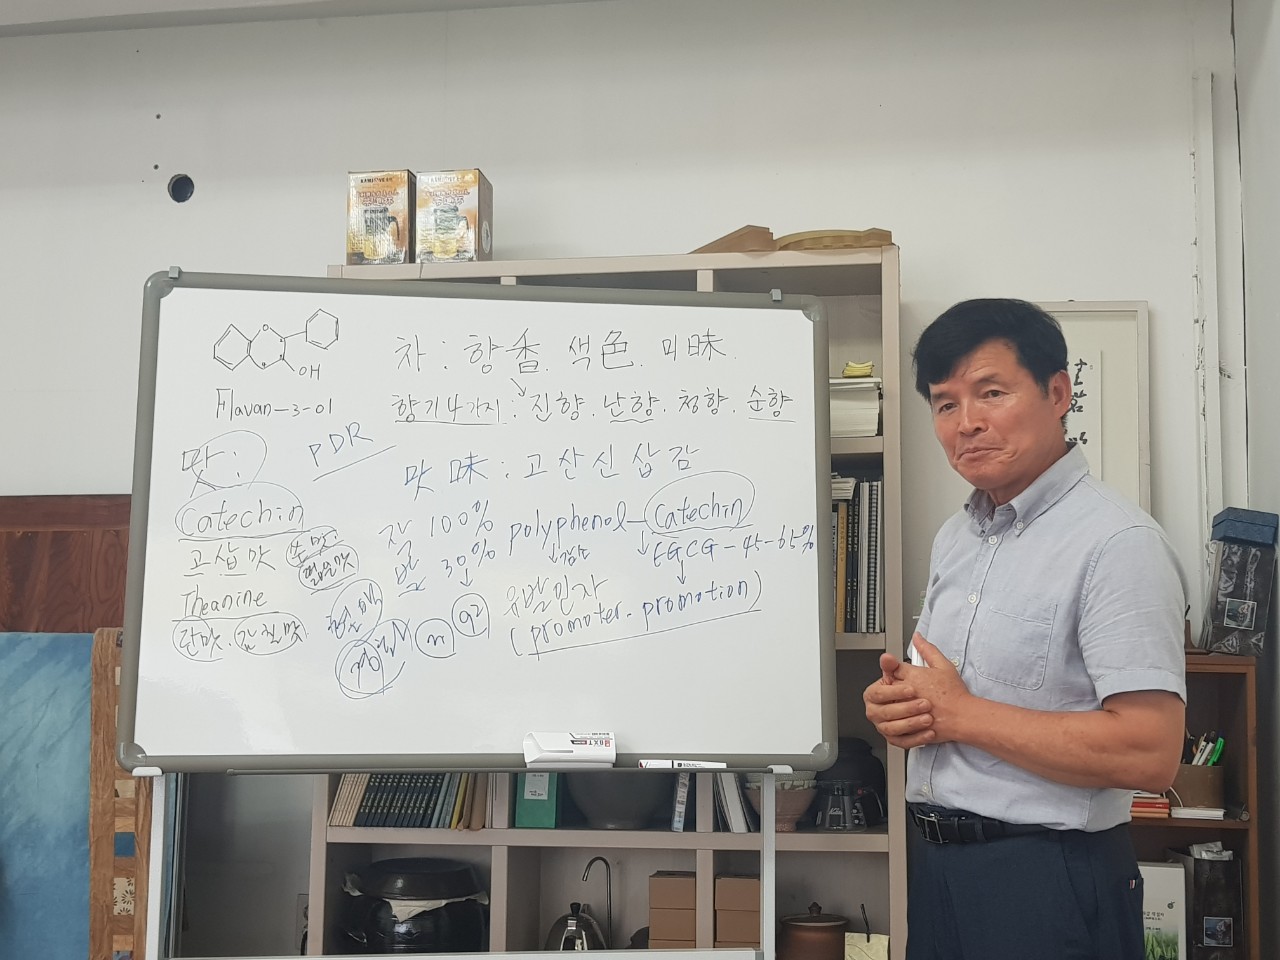 OH
Flavan-3-ol
차 : 향香. 색色. 미味.
향기4가지 : 진향. 난향. 청향. 순향
PDR
맛 :
맛 味 : 고산신삽감
Catechin
고삽맛
쓴맛.
떫은맛
Theanine
단맛. 감칠맛
잘 100%
발 30%
polyphenol - Catechin
감소
EGCG - 45-65%
유발인자
(promoter. promotion)